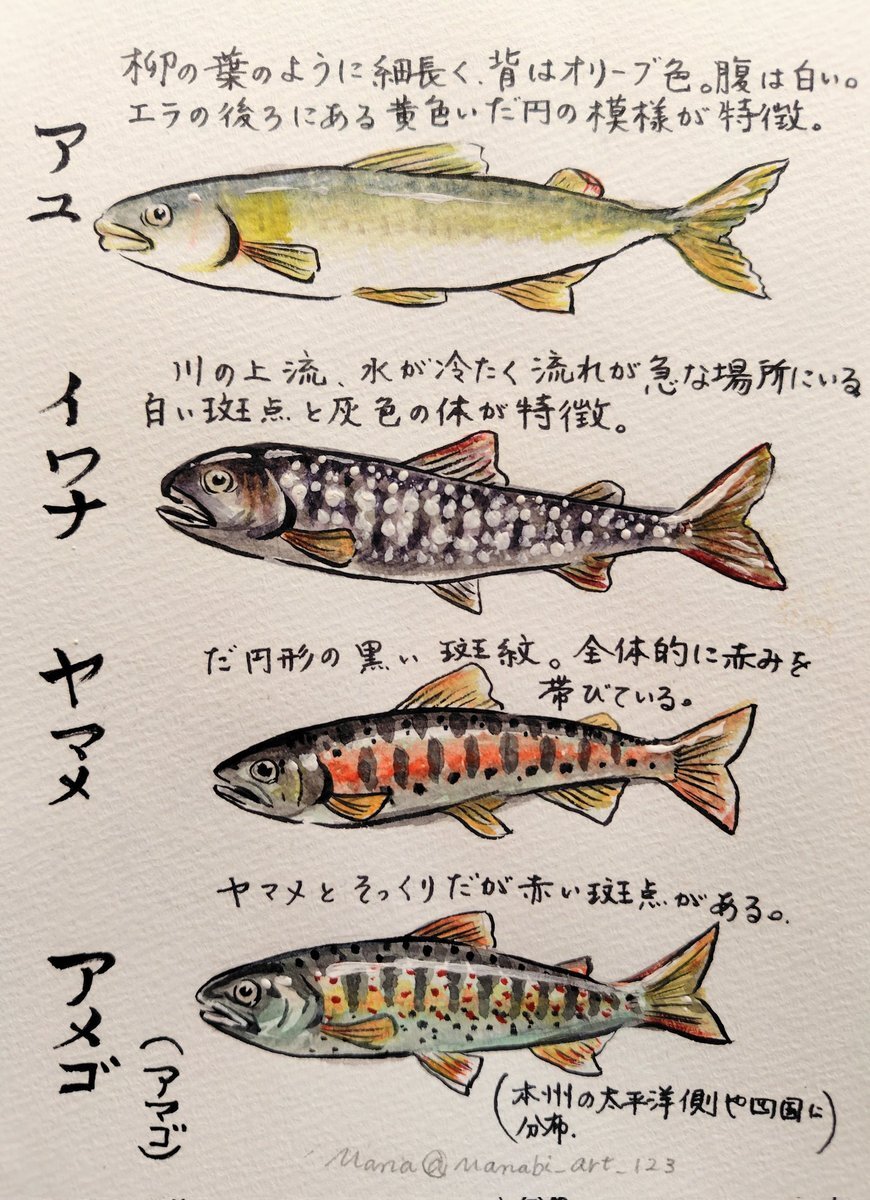 柳の葉のように細長く、背はオリーブ色。腹は白い。
エラの後ろにある黄色いだ円の模様が特徴。
アユ
川の上流、水が冷たく流れが急な場所にいる
白い斑点と灰色の体が特徴。
イワナ
だ円形の黒い斑紋。全体的に赤みを
帯びている。
ヤマメ
ヤマメとそっくりだが赤い斑点がある。
アメゴ
(アマゴ)
(本州の太平洋側や四国に
分布.)
Mana@manabi_art_123